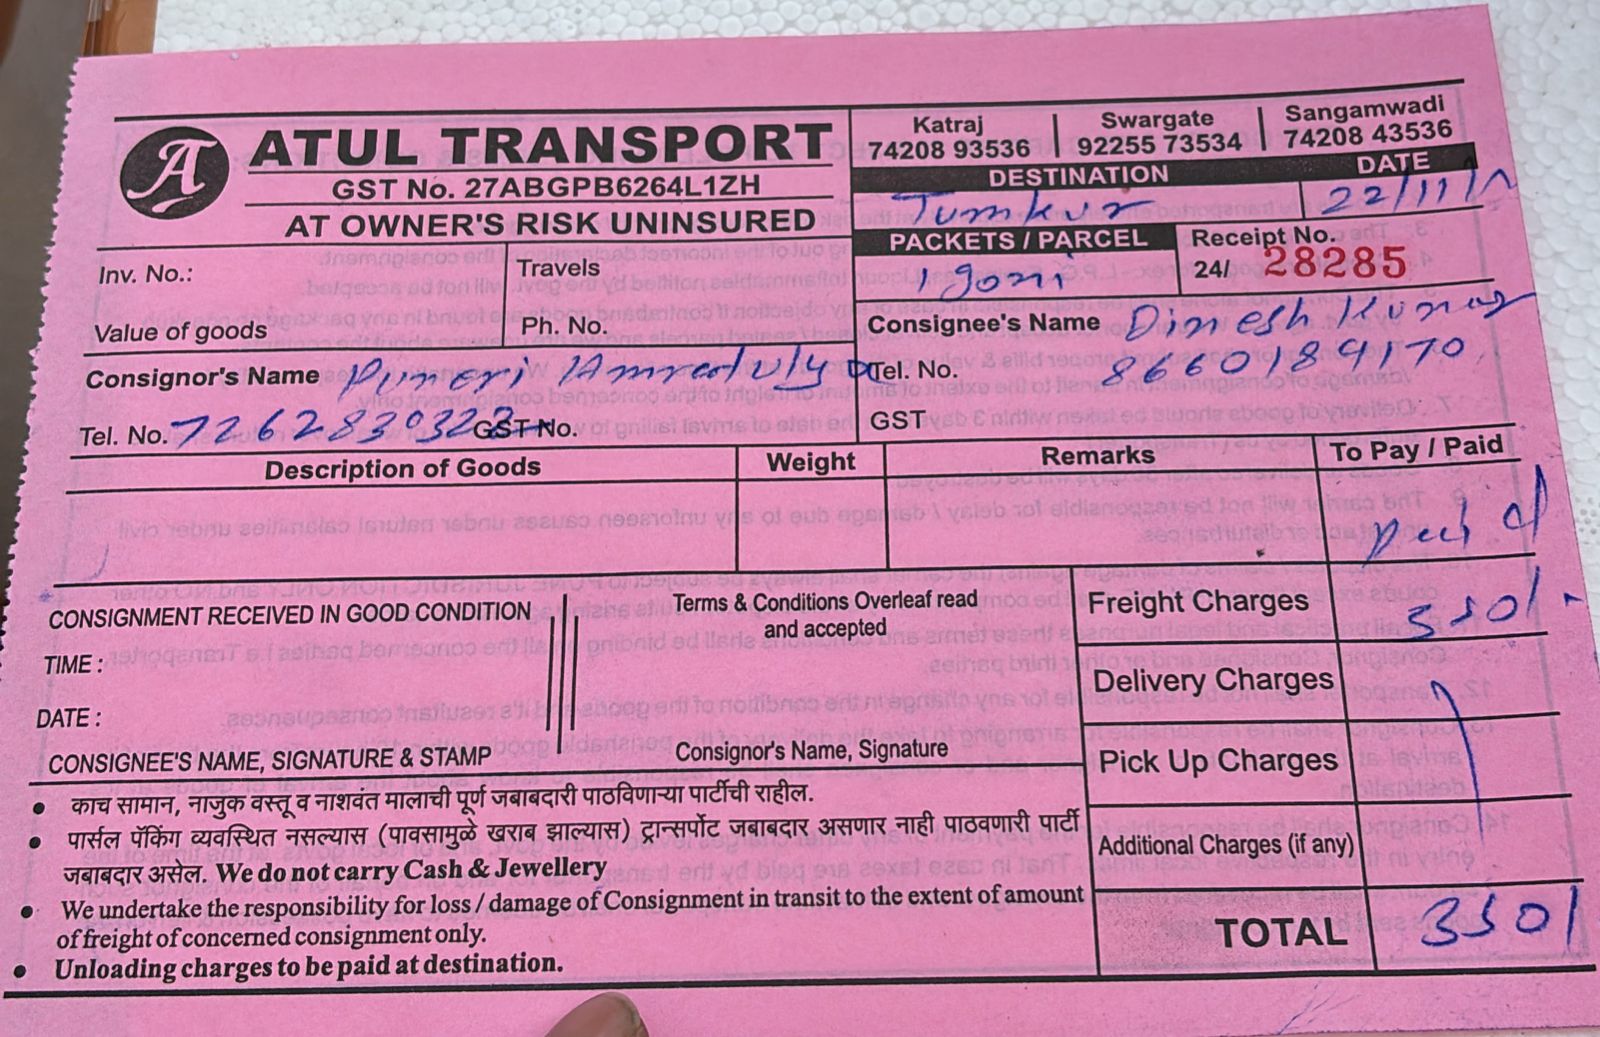 ATUL TRANSPORT
GST No. 27ABGPB6264L1ZH
AT OWNER'S RISK UNINSURED
Katraj
74208 93536
Swargate
92255 73534
Sangamwadi
74208 43536
DESTINATION
Tumkur
DATE
22/11/
PACKETS / PARCEL
1 goni
Receipt No.
24/ 28285
Inv. No.:
Value of goods
Travels
Ph. No.
Consignor's Name Puneri Amrutulya
Tel. No. 7262830322 GST No.
Consignee's Name Dinesh Kumar
Tel. No. 8660184170
GST
Description of Goods
Weight
Remarks
To Pay / Paid
paid
CONSIGNMENT RECEIVED IN GOOD CONDITION
TIME :
DATE :
CONSIGNEE'S NAME, SIGNATURE & STAMP
Terms & Conditions Overleaf read
and accepted
Consignor's Name, Signature
Freight Charges 350/-
Delivery Charges
Pick Up Charges
Additional Charges (if any)
TOTAL 350/
• काच सामान, नाजुक वस्तू व नाशवंत मालाची पूर्ण जबाबदारी पाठविणाऱ्या पार्टीची राहील.
• पार्सल पॅकिंग व्यवस्थित नसल्यास (पावसामुळे खराब झाल्यास) ट्रान्सपोर्ट जबाबदार असणार नाही पाठवणारी पार्टी
जबाबदार असेल. We do not carry Cash & Jewellery
• We undertake the responsibility for loss / damage of Consignment in transit to the extent of amount
of freight of concerned consignment only.
• Unloading charges to be paid at destination.